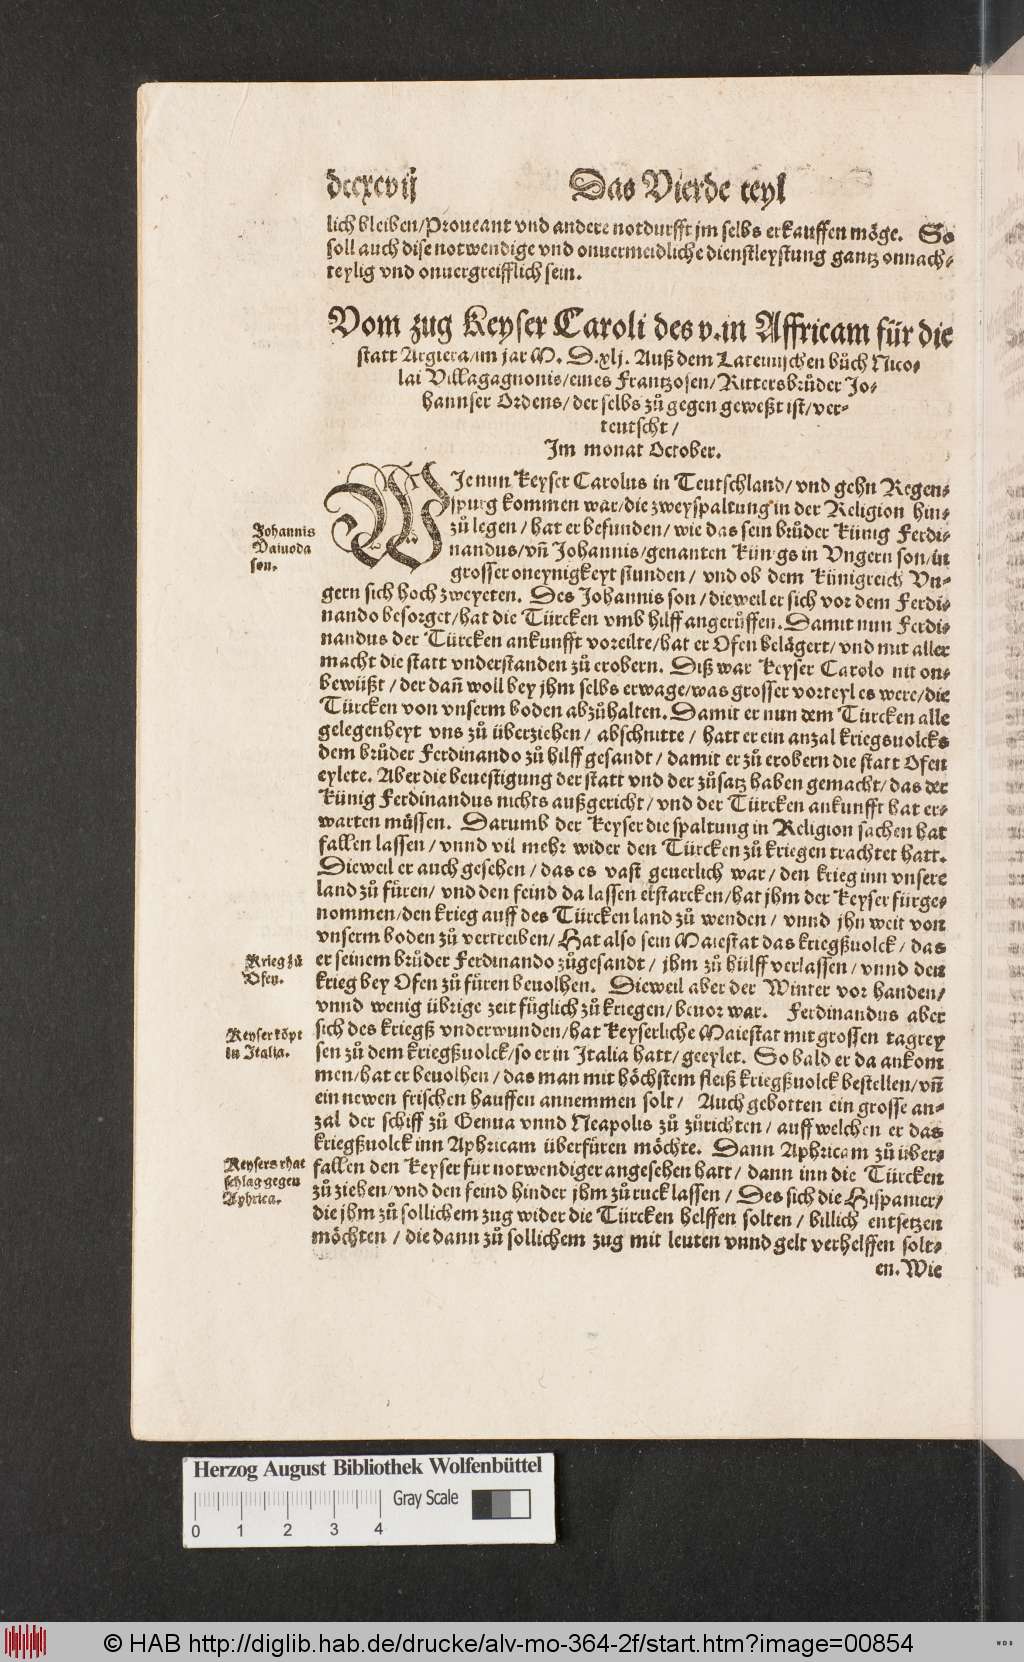 dccxcvij Das Vierde teyl
lich bleiben/Proueant vnd andere notdurfft jm selbs erkauffen möge. So
soll auch dise notwendige vnd onuermeidliche dienstleystung gantz onnach-
teylig vnd onuergreifflich sein.
Vom zug Keyser Caroli des v.in Affricam für die
statt Argiera/im jar M. D.xlj. Auß dem Lateinischen bůch Nico-
lai Villagagnonis/eines Frantzosen/Rittersbrůder Jo-
hannser Ordens/der selbs zů gegen geweßt ist/ver-
teutscht/
Im monat October.
WIe nun Keyser Carolus in Teutschland/vnd gehn Regen-
spurg kommen war/die zweyspaltung in der Religion hin-
zů legen/hat er befunden/wie das sein brůder Künig Ferdi-
nandus/vñ Johannis/genanten Künigs in Vngern son/in
grosser oneynigkeyt stunden/vnd ob dem Künigreich Vn-
gern sich hoch zweyeten. Des Johannis son/dieweil er sich vor dem Ferdi-
nando besorget/hat die Türcken vmb hilff angerůffen. Damit nun Ferdi-
nandus der Türcken ankunfft voreilte/hat er Ofen belägert/vnd mit aller
macht die statt vnderstanden zů erobern. Diß war Keyser Carolo nit on-
bewüßt/der dañ woll bey jhm selbs erwage/was grosser vorteyl es were/die
Türcken von vnserm boden abzůhalten. Damit er nun dem Türcken alle
gelegenheyt vns zů überziehen/abschnitte/hatt er ein anzal kriegsuolcks
dem brůder Ferdinando zů hilff gesandt/damit er zů erobern die statt Ofen
eylete. Aber die beuestigung der statt vnd der zůsatz haben gemacht/das der
Künig Ferdinandus nichts außgericht/vnd der Türcken ankunfft hat er-
warten müssen. Darumb der Keyser die spaltung in Religion sachen hat
fallen lassen/vnnd vil mehr wider den Türcken zů kriegen trachtet hatt.
Dieweil er auch gesehen/das es vast geuerlich war/den krieg inn vnsere
land zů füren/vnd den feind da lassen erstarcken/hat jhm der Keyser fürge-
nommen/den krieg auff des Türcken land zů wenden/vnnd jhn weit von
vnserm boden zů vertreiben/Hat also sein Maiestat das kriegßuolck/das
er seinem brůder Ferdinando zůgesandt/jhm zů hülff verlassen/vnnd den
krieg bey Ofen zů füren beuolhen. Dieweil aber der Winter vor handen/
vnnd wenig übrige zeit füglich zů kriegen/beuor war. Ferdinandus aber
sich des kriegß vnderwunden/hat Keyserliche Maiestat mit grossen tagrey
sen zů dem kriegßuolck/so er in Italia hatt/geeylet. So bald er da ankom
men/hat er beuolhen/das man mit höchstem fleiß kriegßuolck bestellen/vñ
ein newen frischen hauffen annemmen solt/ Auch gebotten ein grosse an-
zal der schiff zů Genua vnnd Neapolis zů zůrichten/auff welchen er das
kriegßuolck inn Aphricam überfüren möchte. Dann Aphricam zů über-
fallen den Keyser für notwendiger angesehen hatt/dann inn die Türcken
zů ziehen/vnd den feind hinder jhm zů ruck lassen/Des sich die Hispanier/
die jhm zů sollichem zug wider die Türcken helffen solten/billich entsetzen
möchten/die dann zů sollichem zug mit leuten vnnd gelt verhelffen solt-
en. Wie
Johannis
Vaiuoda
son.
Krieg zů
Ofen.
Keyser köpt
in Italia.
Keysers rhat
schlag gegen
Aphrica.
Herzog August Bibliothek Wolfenbüttel
Gray Scale
0 1 2 3 4
© HAB http://diglib.hab.de/drucke/alv-mo-364-2f/start.htm?image=00854